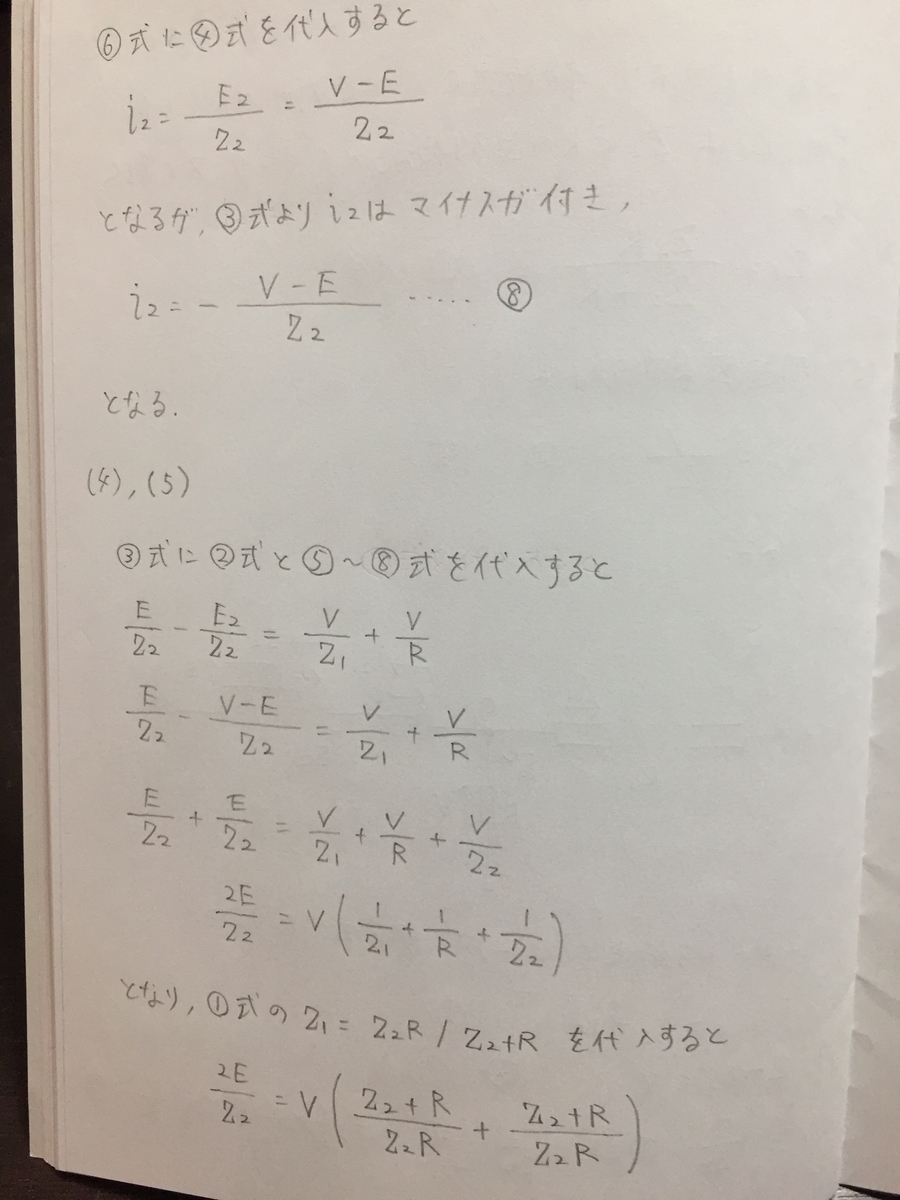 ⑥式に④式を代入すると
i₂ = E₂/Z₂ = (V-E)/Z₂
となるが,③式より i₂は マイナスガ付き,
i₂ = - (V-E)/Z₂ ····· ⑧
となる.
(4),(5)
③式に②式と⑤~⑧式を代入すると
E/Z₂ - E₂/Z₂ = V/Z₁ + V/R
E/Z₂ - (V-E)/Z₂ = V/Z₁ + V/R
E/Z₂ + E/Z₂ = V/Z₁ + V/R + V/Z₂
2E/Z₂ = V(1/Z₁ + 1/R + 1/Z₂)
となり,①式の Z₁ = Z₂R / Z₂+R を代入すると
2E/Z₂ = V((Z₂+R)/Z₂R + (Z₂+R)/Z₂R)